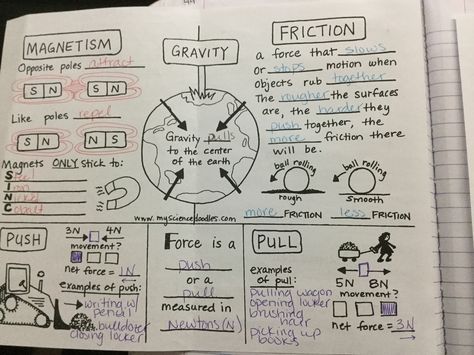 MAGNETISM
Opposite poles attract
S N S N
Like poles repel
S N N S
Magnets ONLY stick to:
Steel
Iron
Nickel
Cobalt
GRAVITY
Gravity pulls
to the center
of the earth
www.mysciencedoodles.com
FRICTION
a force that slows
or stops motion when
objects rub together
The rougher the surfaces
are, the harder they
push together, the
more friction there
will be.
ball rolling
rough
more FRICTION
ball rolling
smooth
less FRICTION
PUSH
3N 4N
movement?
net force = 1N
examples of push:
writing w/
pencil
bulldozer
closing locker
Force is a
push
or a
pull
measured in
Newtons(N)
PULL
examples
of pull:
pulling wagon
opening locker
brushing
hair
picking up
books
5N 8N
movement?
net force = 3N